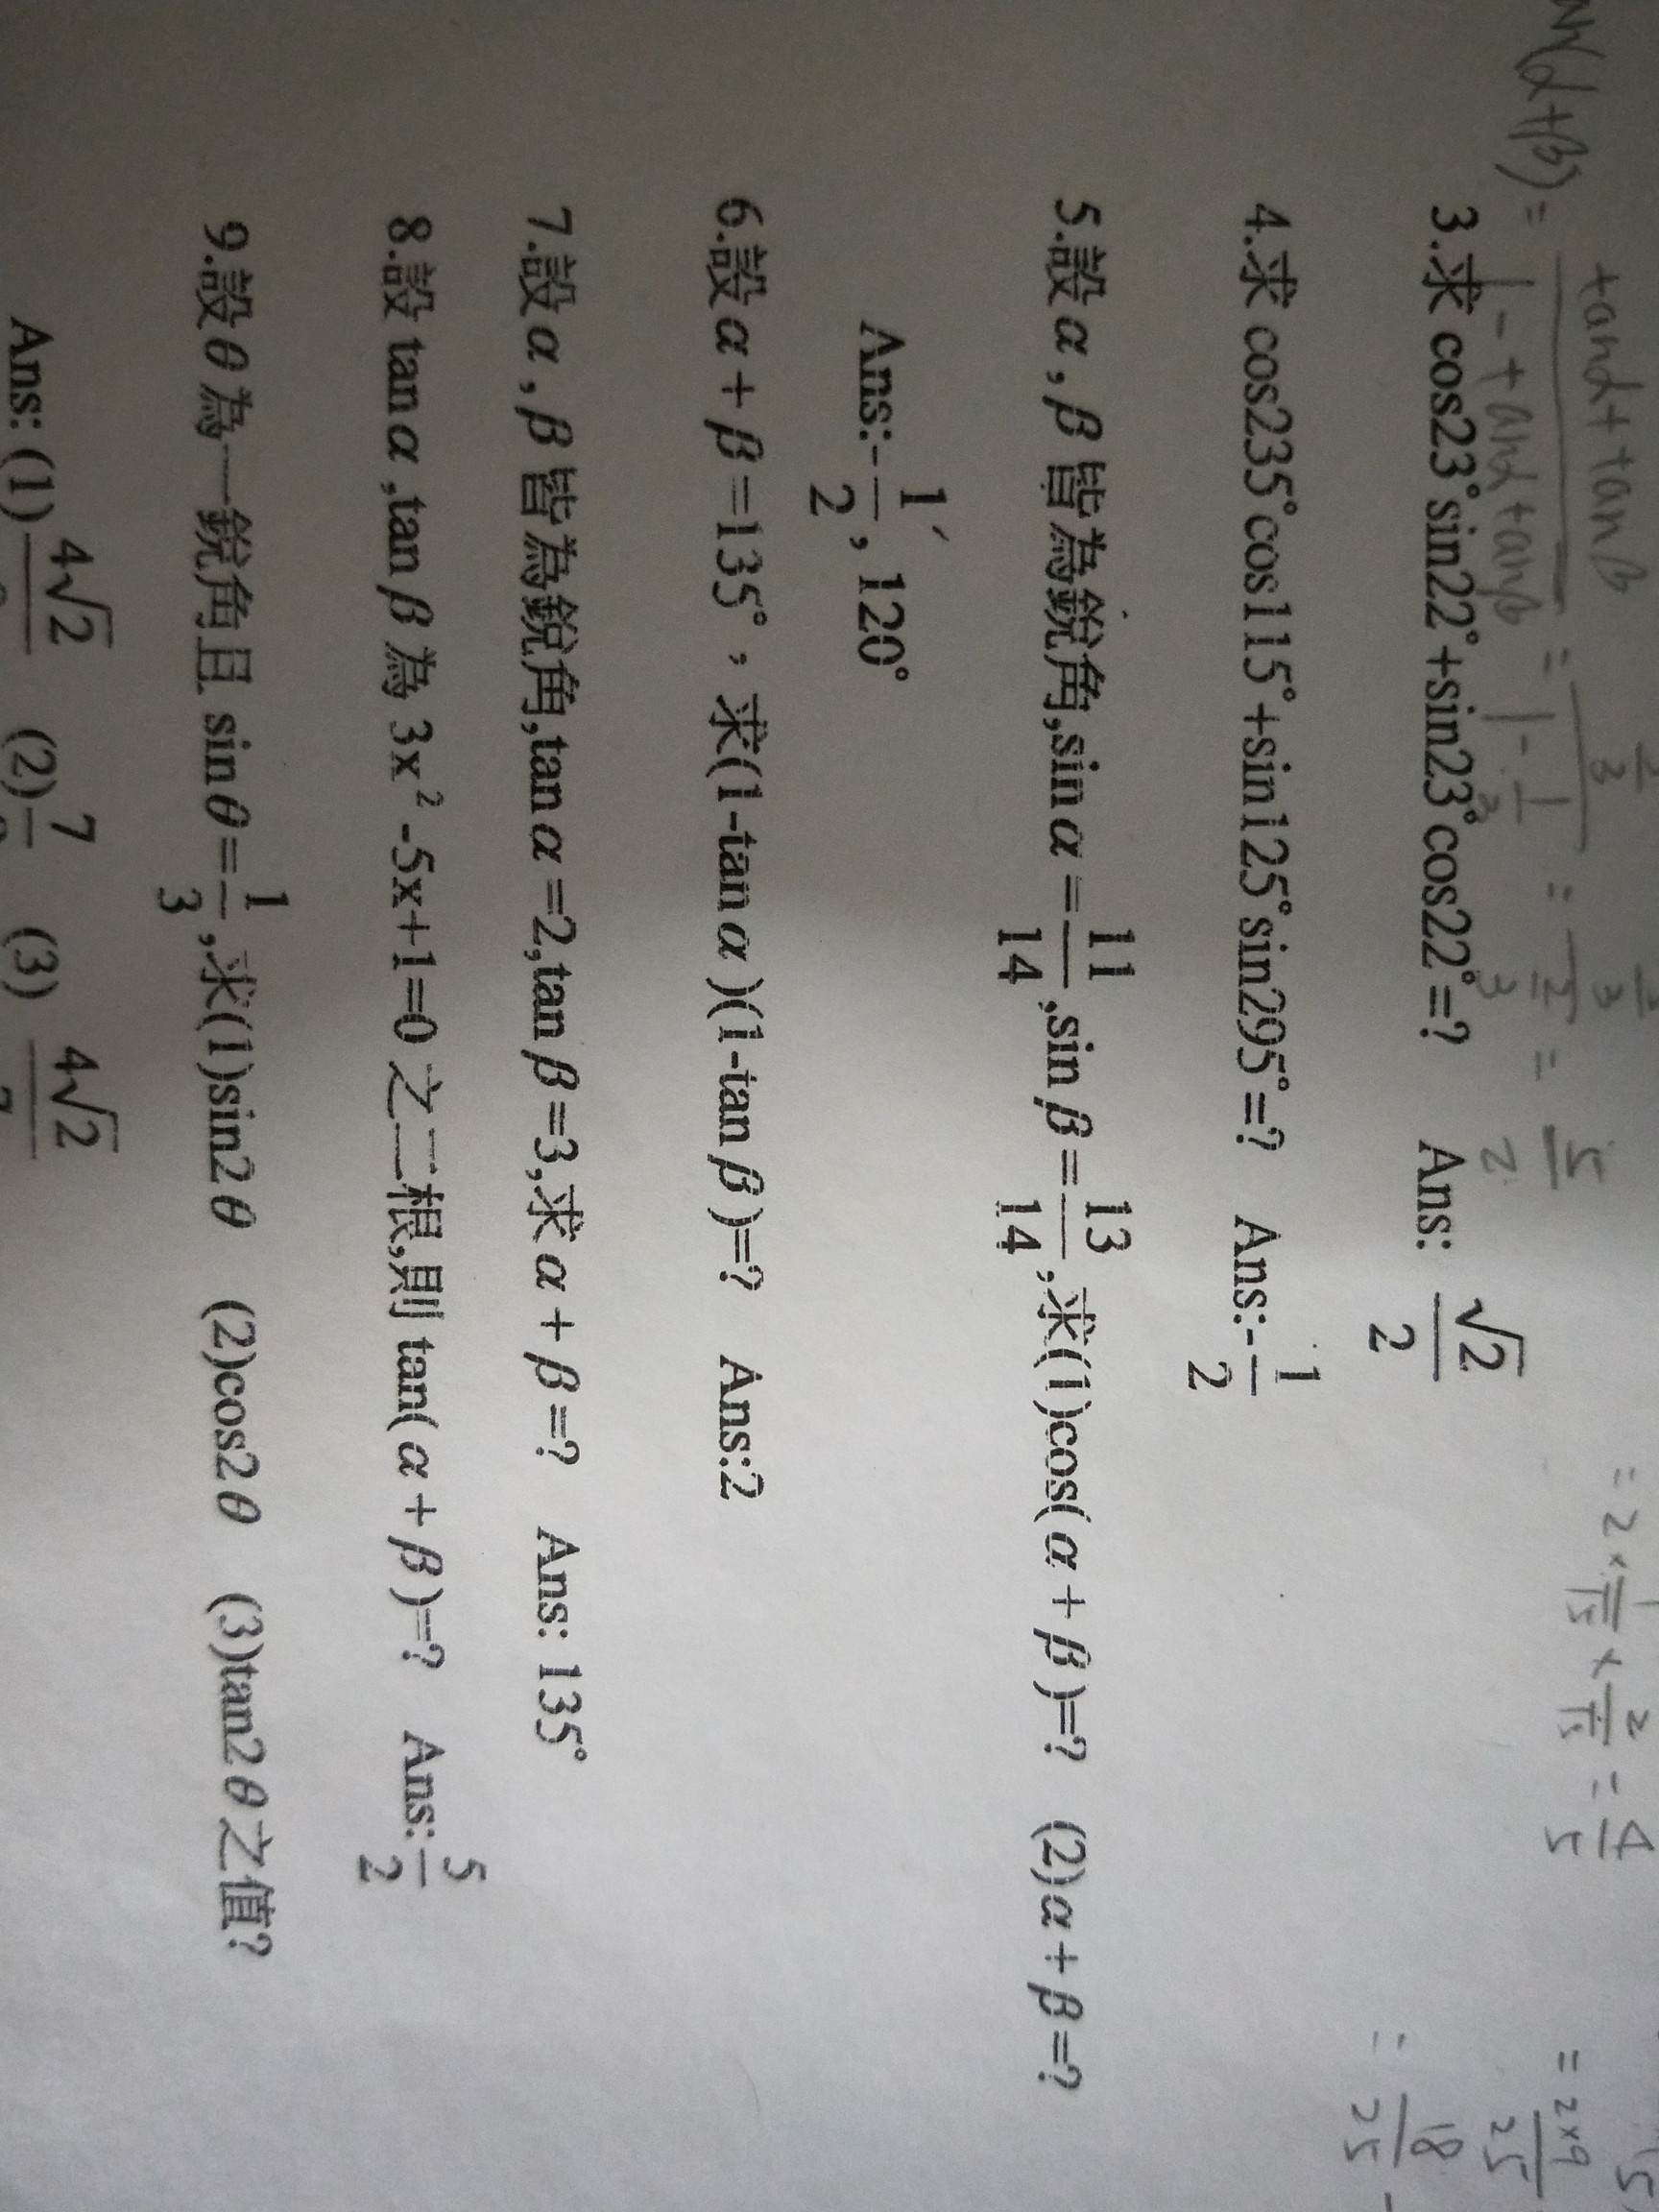 tan(α+β) = (tanα+tanβ)/(1-tanα tanβ) = 
= 2×1/√5×2/√5 = 4/5
= 2×9/25
= 18/25 -
3.求 cos23°sin22°+sin23°cos22°=? Ans: √2/2
4.求 cos235°cos115°+sin125°sin295°=? Ans:-1/2
5.設α,β皆為銳角,sinα=11/14,sinβ=13/14,求(1)cos(α+β)=? (2)α+β=?
Ans:-1/2, 120°
6.設α+β=135°，求(1-tanα)(1-tanβ)=? Ans:2
7.設α,β皆為銳角,tanα=2,tanβ=3,求α+β=? Ans: 135°
8.設 tanα,tanβ為 3x²-5x+1=0 之二根,則 tan(α+β)=? Ans:5/2
9.設θ為一銳角且 sinθ=1/3,求(1)sin2θ (2)cos2θ (3)tan2θ之值?
Ans: (1) 4√2 (2) 7 (3) 4√2